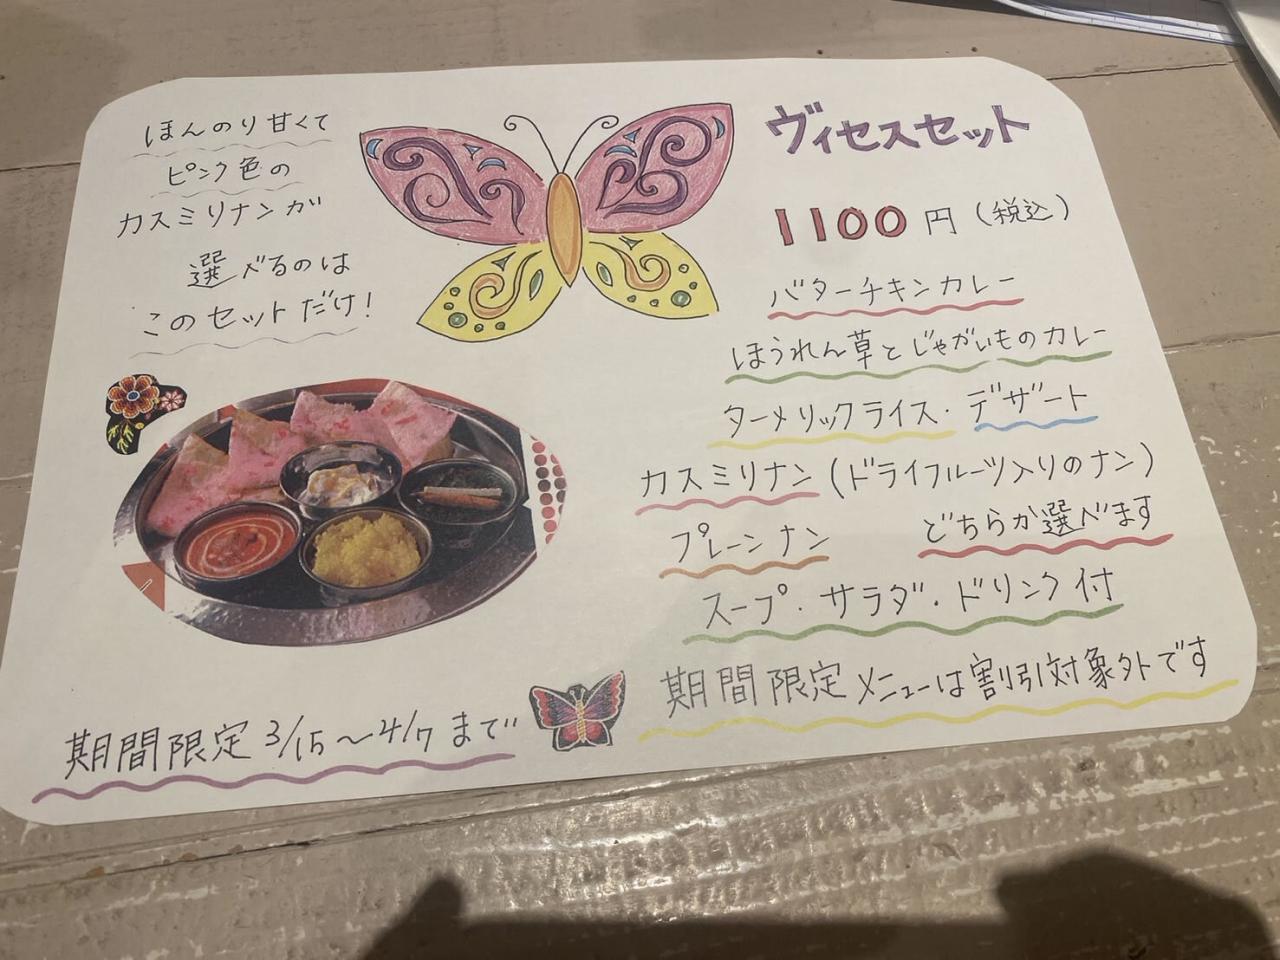 ほんのり甘くて
ピンク色の
カスミリナンが
選べるのは
このセットだけ!
ヴィセスセット
1100円(税込)
バターチキンカレー
ほうれん草とじゃがいものカレー
ターメリックライス・デザート
カスミリナン(ドライフルーツ入りのナン)
プレーンナン どちらか選べます
スープ・サラダ・ドリンク付
期間限定メニューは割引対象外です
期間限定3/15〜4/7まで